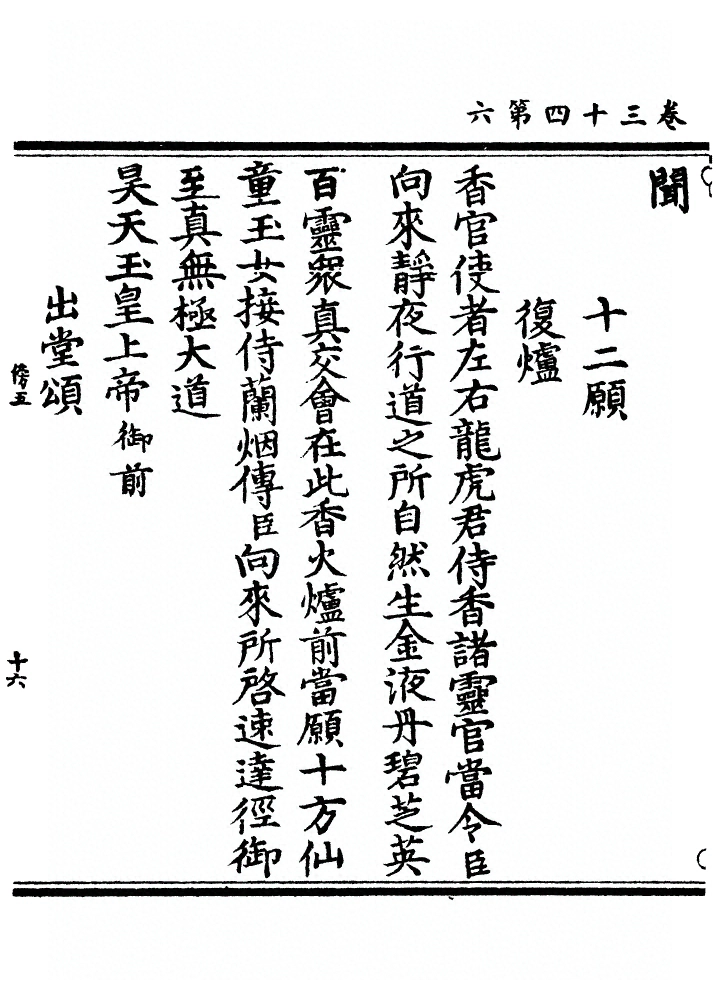 卷三十四第六
聞
十二願
復爐
香官使者左右龍虎君侍香諸靈官當令臣
向來靜夜行道之所自然生金液丹碧芝英
百靈衆真交會在此香火爐前當願十方仙
童玉女接侍蘭烟傳臣向來所啓速達徑御
至真無極大道
昊天玉皇上帝御前
出堂頌
傍五
十六